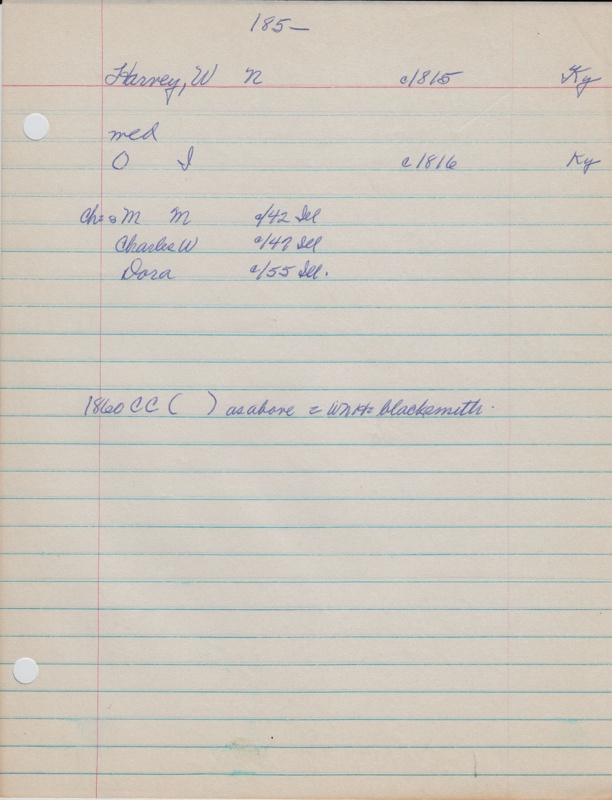 185-
Harvey, W N c/1815 Ky
med
O I c1816 Ky
Ch: M M c/42 Ill
Charles W c/47 Ill
Dora c/55 Ill.
1860 CC ( ) as above = WNH= blacksmith.